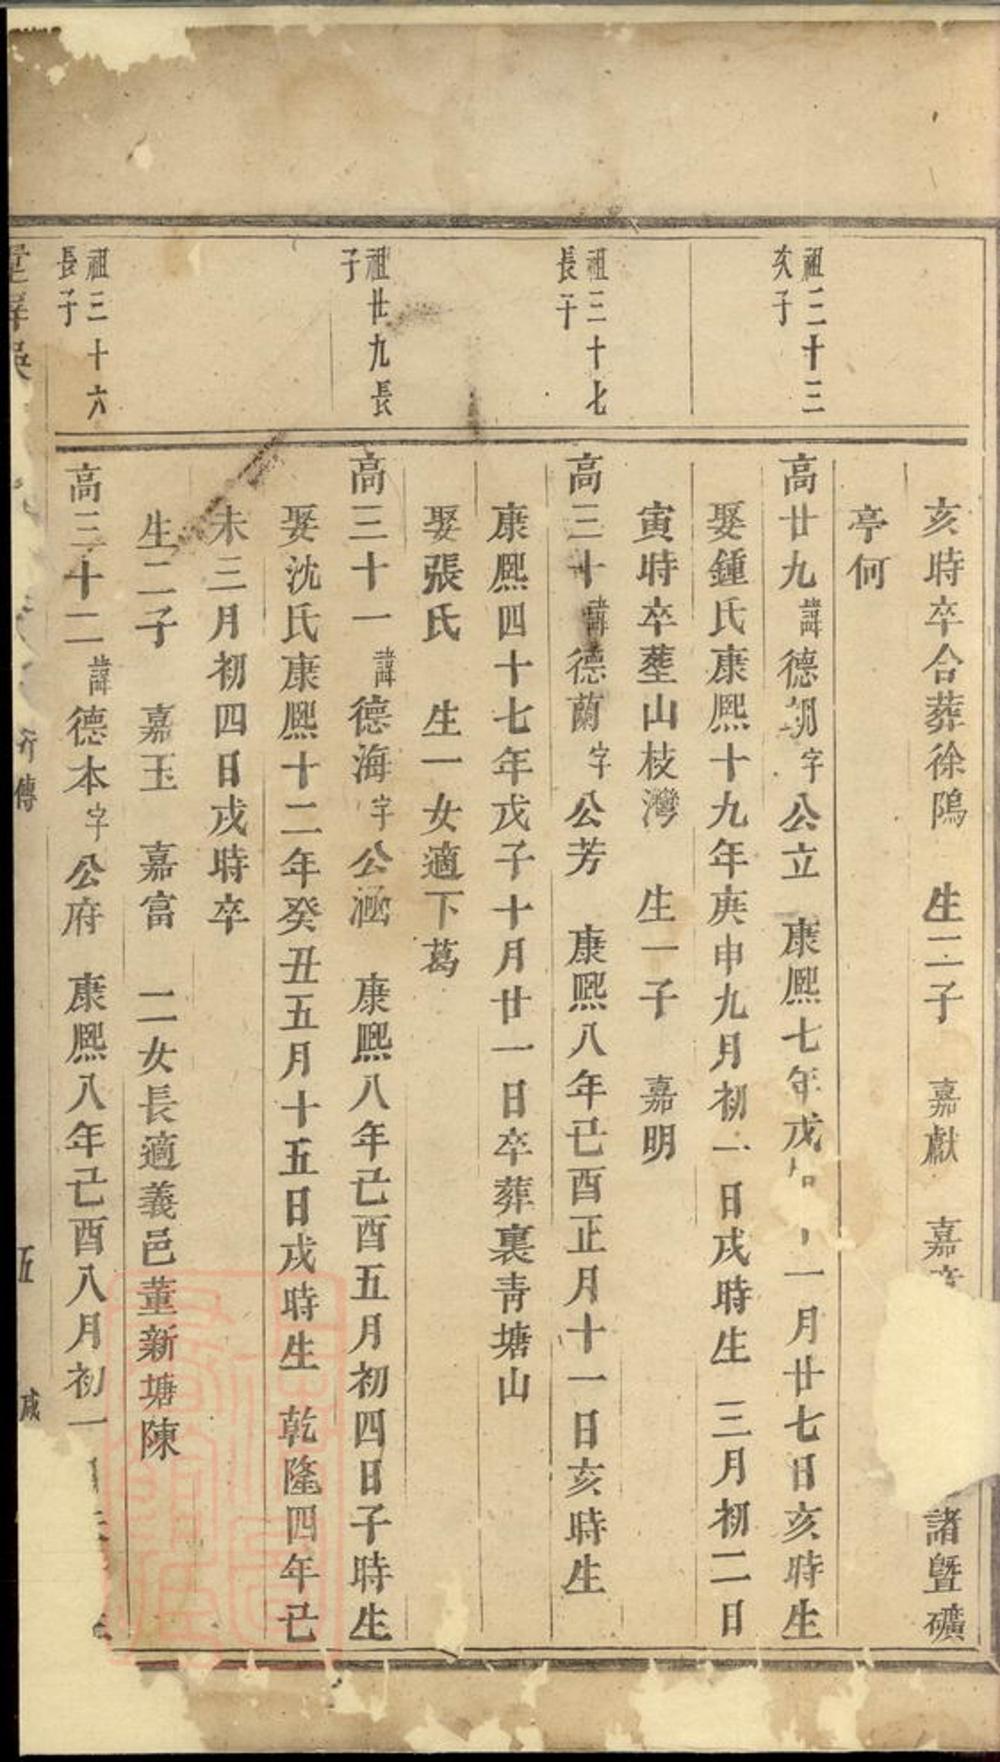 亥時卒合葬徐隖　生二子　嘉獻　嘉　諸暨礦
亭何
祖三十三
次子
高廿九諱德朝字公立　康熙七年戊　一月廿七日亥時生
娶鍾氏康熙十九年庚申九月初一日戌時生　三月初二日
寅時卒塟山枝灣　生一子　嘉明
祖三十七
長子
高三十諱德蘭字公芳　康熙八年己酉正月十一日亥時生
康熙四十七年戊子十月廿一日卒葬裏青塘山
娶張氏　生一女適下葛
祖廿九長
子
高三十一諱德海字公涵　康熙八年己酉五月初四日子時生
娶沈氏康熙十二年癸丑五月十五日戌時生　乾隆四年己
未三月初四日戌時卒
生二子　嘉玉　嘉富　二女長適義邑董新塘陳
祖三十六
長子
高三十二諱德本字公府　康熙八年己酉八月初一
吳　行傳　五　咸